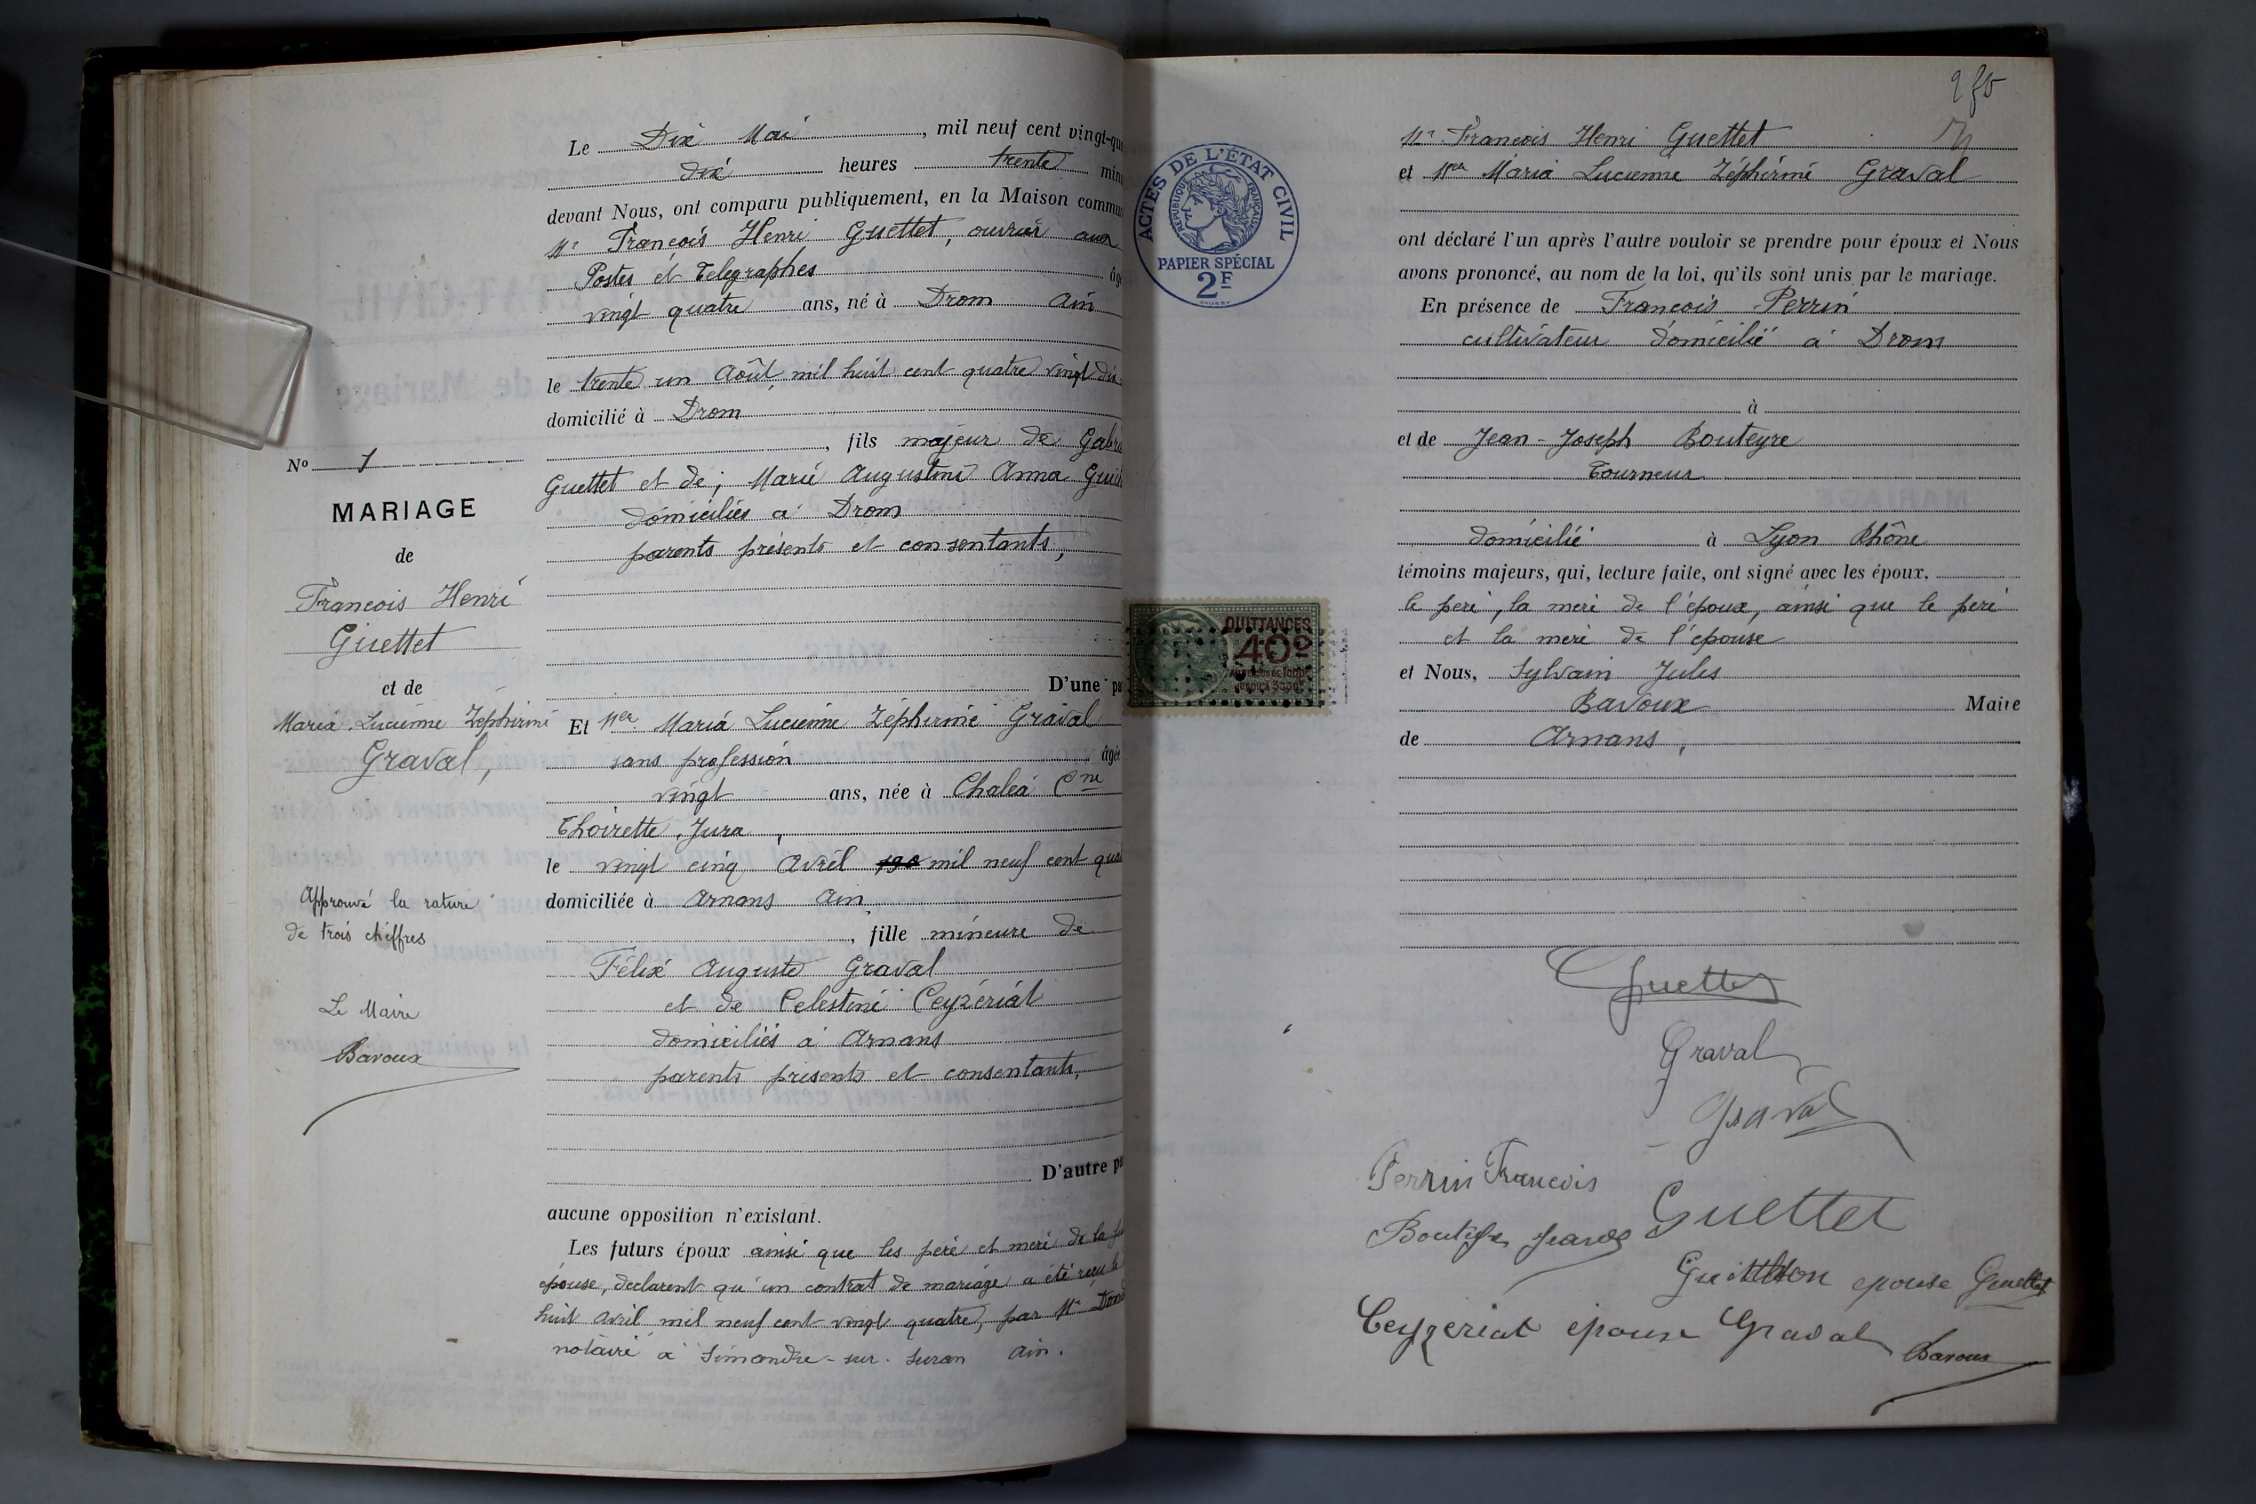 Le Dix Mai, mil neuf cent vingt-qua
dix heures trente minu
devant Nous, ont comparu publiquement, en la Maison commun
Mr François Henri Guettet, ouvrier aux
Postes et Telegraphes âgé
vingt quatre ans, né à Drom Ain
le trente un Août mil huit cent quatre vingt dix
domicilié à Drom
, fils majeur de Gabri
Guettet et de, Marie Augustine Anna
domiciliés à Drom
parents présents et consentants,
D'une pa
Et Melle Maria Lucienne Zéphirine Graval
sans profession âgée
vingt ans, née à Chaléa Cne
Thoirette, Jura,
le vingt cinq Avril 190 mil neuf cent quat
domiciliée à Arnans Ain
, fille mineure de
Félix Auguste Graval
et de Celestine Ceyzériat
domiciliés à Arnans
parents présents et consentants,
D'autre pa
aucune opposition n'existant.
Les futurs époux ainsi que les père et mère de la
épouse, declarent qu'un contrat de mariage a été reçu le
huit avril mil neuf cent vingt quatre, par Me
notaire à Simandre-sur-Suran Ain.
No 1
MARIAGE
de
François Henri
Guettet
et de
Maria Lucienne Zéphirine
Graval,
Approuvé la rature
de trois chiffres
Le Maire
Bavoux
ACTES DE L'ÉTAT CIVIL
RÉPUBLIQUE FRANÇAISE
PAPIER SPÉCIAL
2F
QUITTANCES
40c
Mr François Henri Guettet
et Melle Maria Lucienne Zéphirine Graval
ont déclaré l'un après l'autre vouloir se prendre pour époux et Nous
avons prononcé, au nom de la loi, qu'ils sont unis par le mariage.
En présence de François Perrin
cultivateur domicilié à Drom
à
et de Jean-Joseph Bouteyre
Tourneur
domicilié à Lyon Rhône
témoins majeurs, qui, lecture faite, ont signé avec les époux.
le père, la mère de l'époux, ainsi que le père
et la mère de l'épouse
et Nous, Sylvain Jules
Bavoux Maire
de Arnans,
Guettet
Graval
Graval
Perrin François
Guettet
epouse Guettet
Ceyzeriat epouse Graval
Bavoux